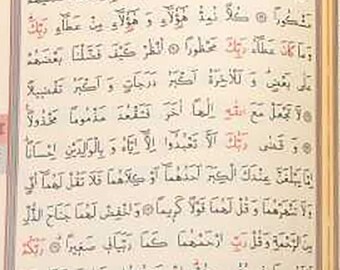 مَشْكُورًا ۞ كُلًّا نُمِدُّ هٰٓؤُلَٓاءِ وَ هٰٓؤُلَٓاءِ مِنْ عَطَٓاءِ رَبِّكَ
وَمَا كَانَ عَطَٓاءُ رَبِّكَ مَحْظُورًا ۞ اُنْظُرْ كَيْفَ فَضَّلْنَا بَعْضَهُمْ
عَلٰى بَعْضٍ وَ لَلْاٰخِرَةُ اَكْبَرُ دَرَجَاتٍ وَ اَكْبَرُ تَفْضِيلًا
۞ لَا تَجْعَلْ مَعَ اللّٰهِ اِلٰهًا اٰخَرَ فَتَقْعُدَ مَذْمُومًا مَخْذُولًا
۞ وَ قَضٰى رَبُّكَ اَلَّا تَعْبُدُٓوا اِلَّٓا اِيَّاهُ وَ بِالْوَالِدَيْنِ اِحْسَانًا
اِمَّا يَبْلُغَنَّ عِنْدَكَ الْكِبَرَ اَحَدُهُمَٓا اَوْ كِلَاهُمَا فَلَا تَقُلْ لَهُمَٓا اُفٍّ
وَلَا تَنْهَرْهُمَا وَ قُلْ لَهُمَا قَوْلًا كَرِيمًا ۞ وَاخْفِضْ لَهُمَا جَنَاحَ الذُّلِّ
مِنَ الرَّحْمَةِ وَ قُلْ رَبِّ ارْحَمْهُمَا كَمَا رَبَّيَانِى صَغِيرًا ۞ رَبُّكُمْ